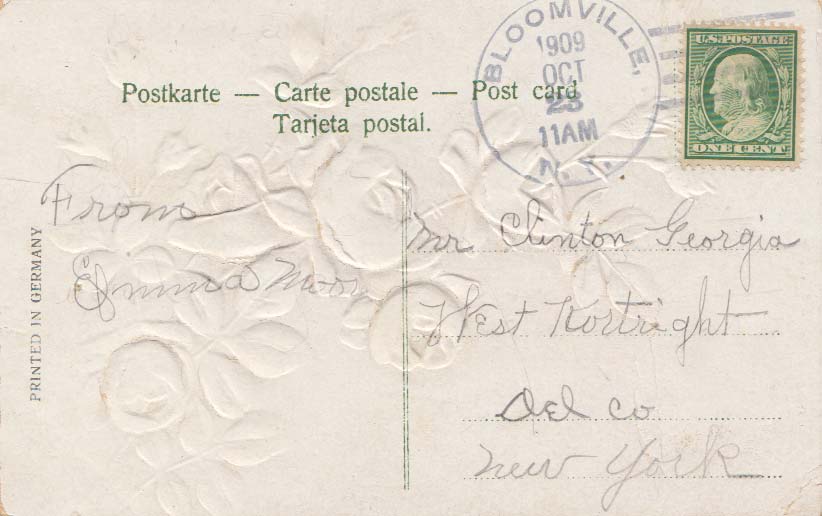 BLOOMVILLE,
1909
OCT
23
11AM
N. Y.
U.S. POSTAGE
ONE CENT
Postkarte — Carte postale — Post card
Tarjeta postal.
From
Emma Moon
PRINTED IN GERMANY
Mr Clinton Georgia
West Kortright
Del co
New York